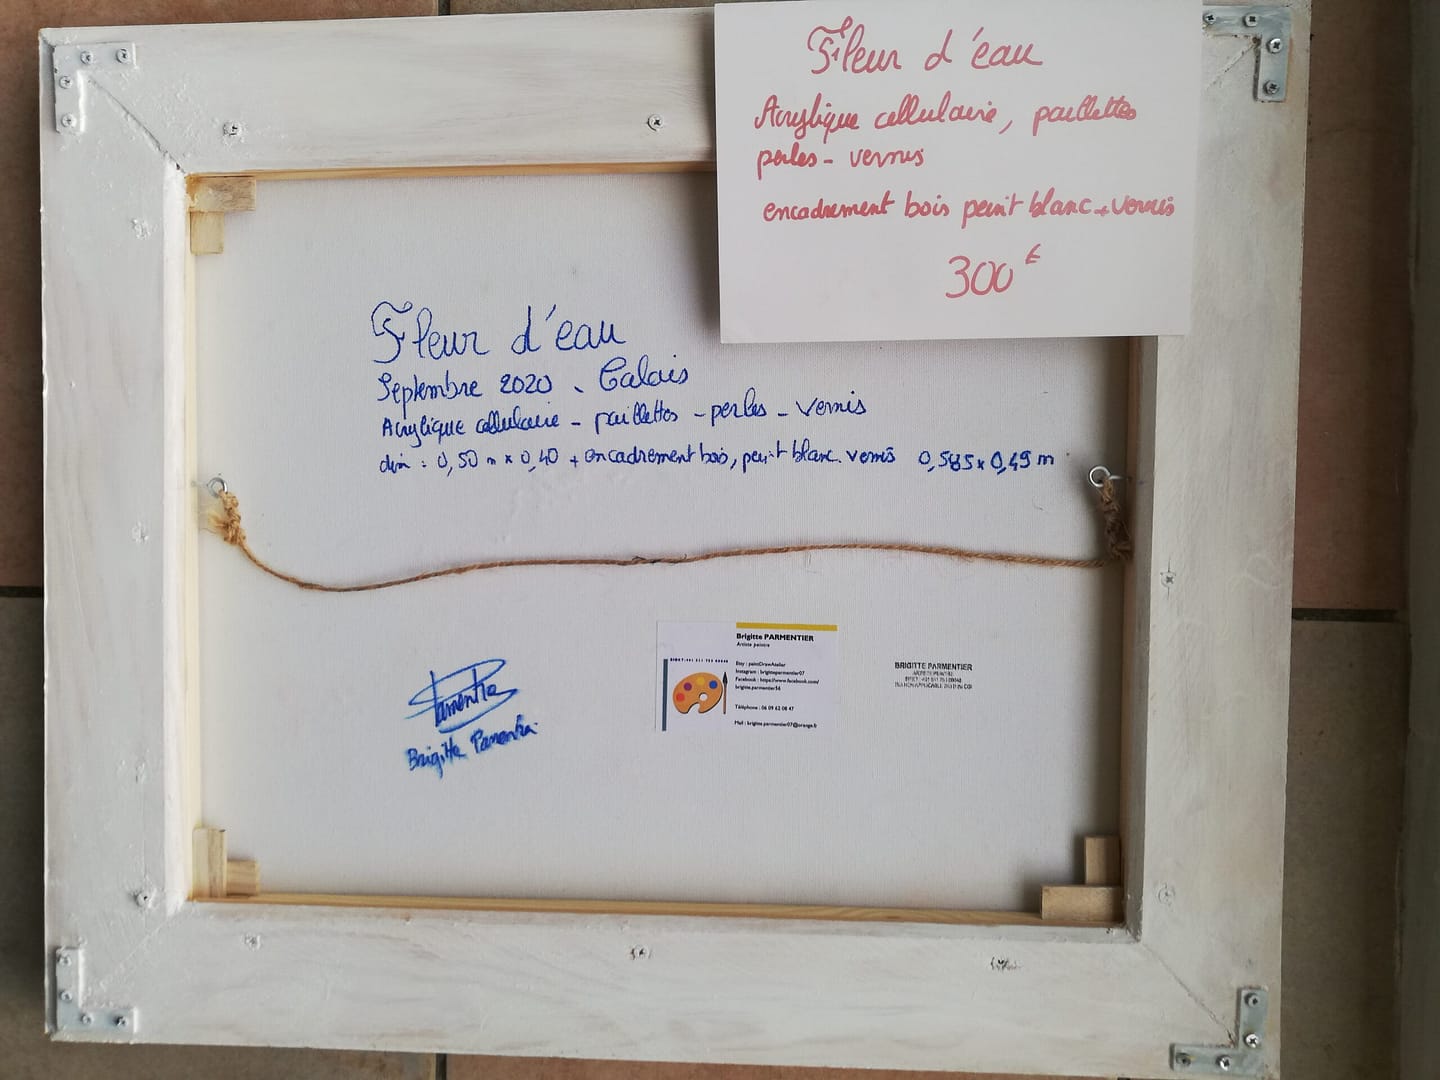 Fleur d'eau
Acrylique cellulaire, paillettes
perles - vernis
encadrement bois peint blanc + vernis
300 €
Fleur d'eau
Septembre 2020 - Calais
Acrylique cellulaire - paillettes - perles - vernis
dim : 0,50 m x 0,40 + encadrement bois, peint blanc. vernis 0,585 x 0,49 m
Parmentier
Brigitte Parmentier
Brigitte PARMENTIER
Artiste peintre
Etsy : paintDrawAtelier
Instagram : brigitteparmentier07
Facebook : https://www.facebook.com/
brigitte.parmentier56
Téléphone : 06 09 62 08 47
Mail : brigitte.parmentier07@orange.fr
BRIGITTE PARMENTIER
ARTISTE PEINTRE